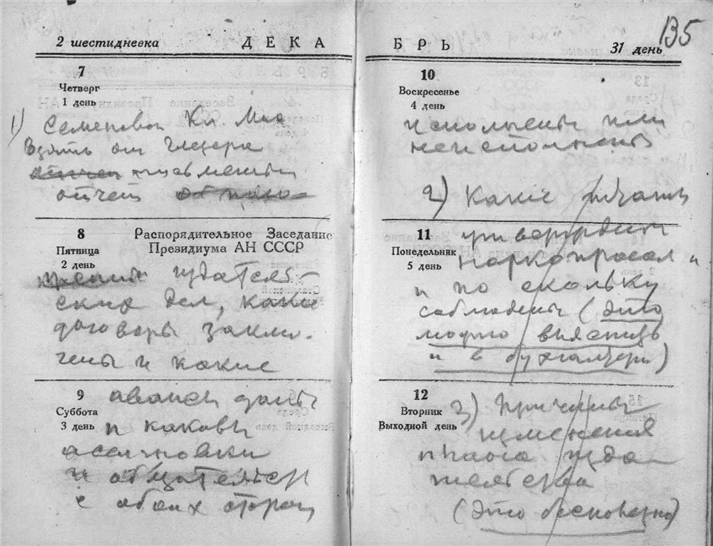 2 шестидневка ДЕКА
7
Четверг
1 день
1) Семеровой Кл. Мих
Взять от Глезера
письменный
отчет
8 Распорядительное Заседание
Пятница Президиума АН СССР
2 день
издатель-
ских дел, какие
договоры заклю-
чены и какие
9 авансы даны
Суббота
3 день и каковы
ассигновки
и обязательств
с обоих сторон
БРЬ 31 день 135
10
Воскресенье
4 день
исполнены или
неисполнены
2) Какие
11 утвержден
Понедельник наркопросом и
5 день
и по скольку
соблюдены (это
можно выяснить
и в бухгалтерии)
12 3) Причины
Вторник
Выходной день изменения
плана изда-
тельства
(это бесполезно)